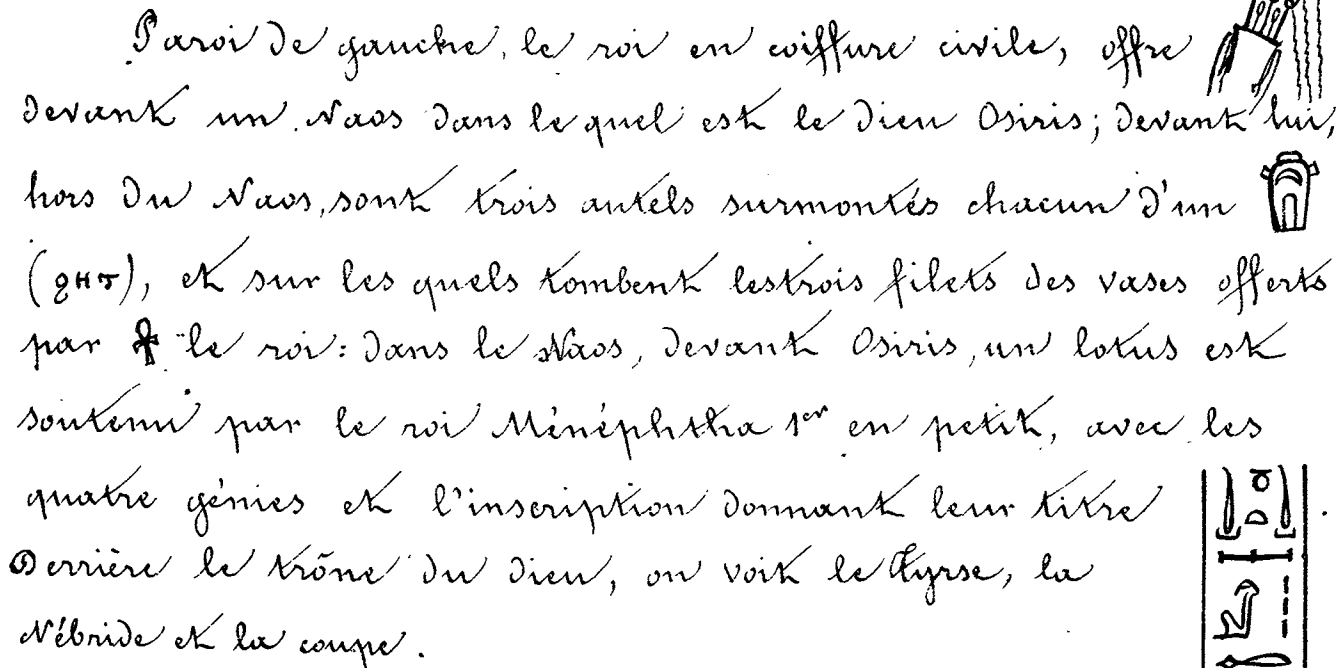 Paroi de gauche, le roi en coiffure civile, offre
devant un Naos dans lequel est le dieu Osiris; devant lui,
hors du Naos, sont trois autels surmontés chacun d'un
(ϩⲏⲧ), et sur les quels tombent les trois filets des vases offerts
par 𓋹 le roi: dans le Naos, devant Osiris, un lotus est
soutenu par le roi Ménéphtha 1er en petit, avec les
quatre génies et l'inscription donnant leur titre
Derrière le trône du dieu, on voit le Thyrse, la
Nébride et la coupe.